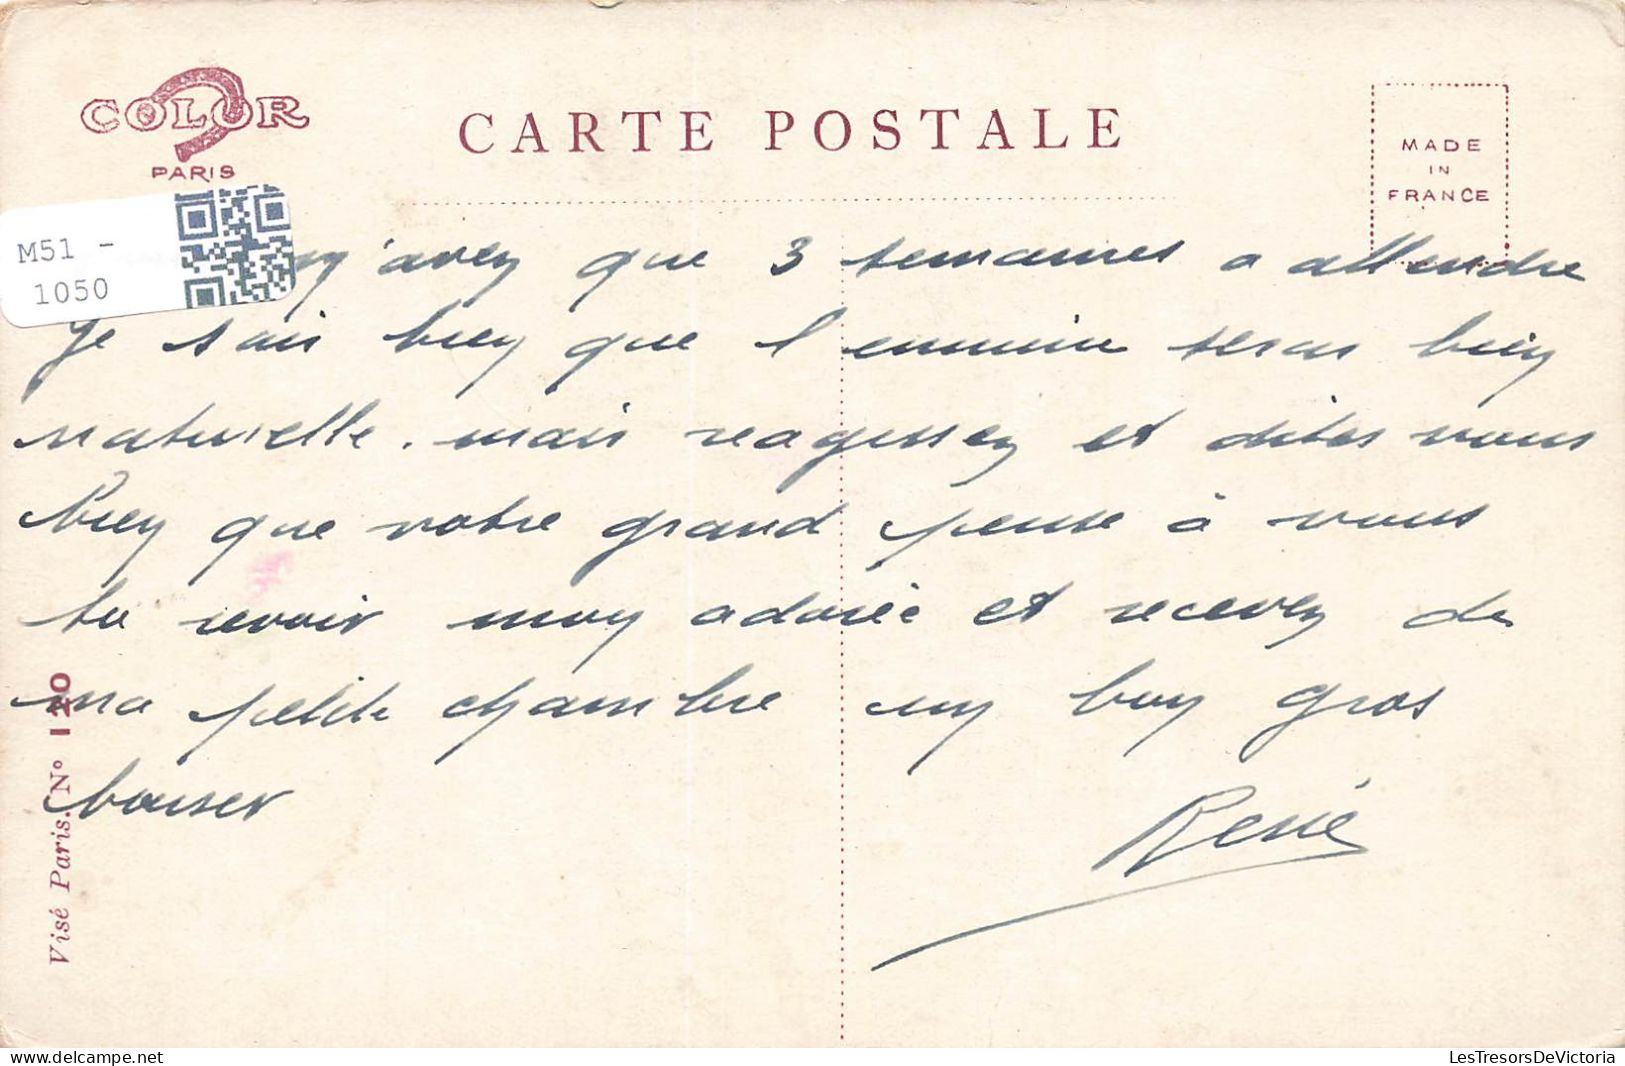 COLOR
PARIS
CARTE POSTALE
MADE
IN
FRANCE
M51 -
1050
n'avez que 3 semaines a attendre
Je sais bien que l ennuie seras bien
naturelle. mais reagissez et dites vous
bien que votre grand pense à vous
tu revoir mon adorée et recevez de
ma petite chambre un bon gros
baiser
René
Visé Paris. Nº 120
LesTresorsDeVictoria
https://www.delcampe.net